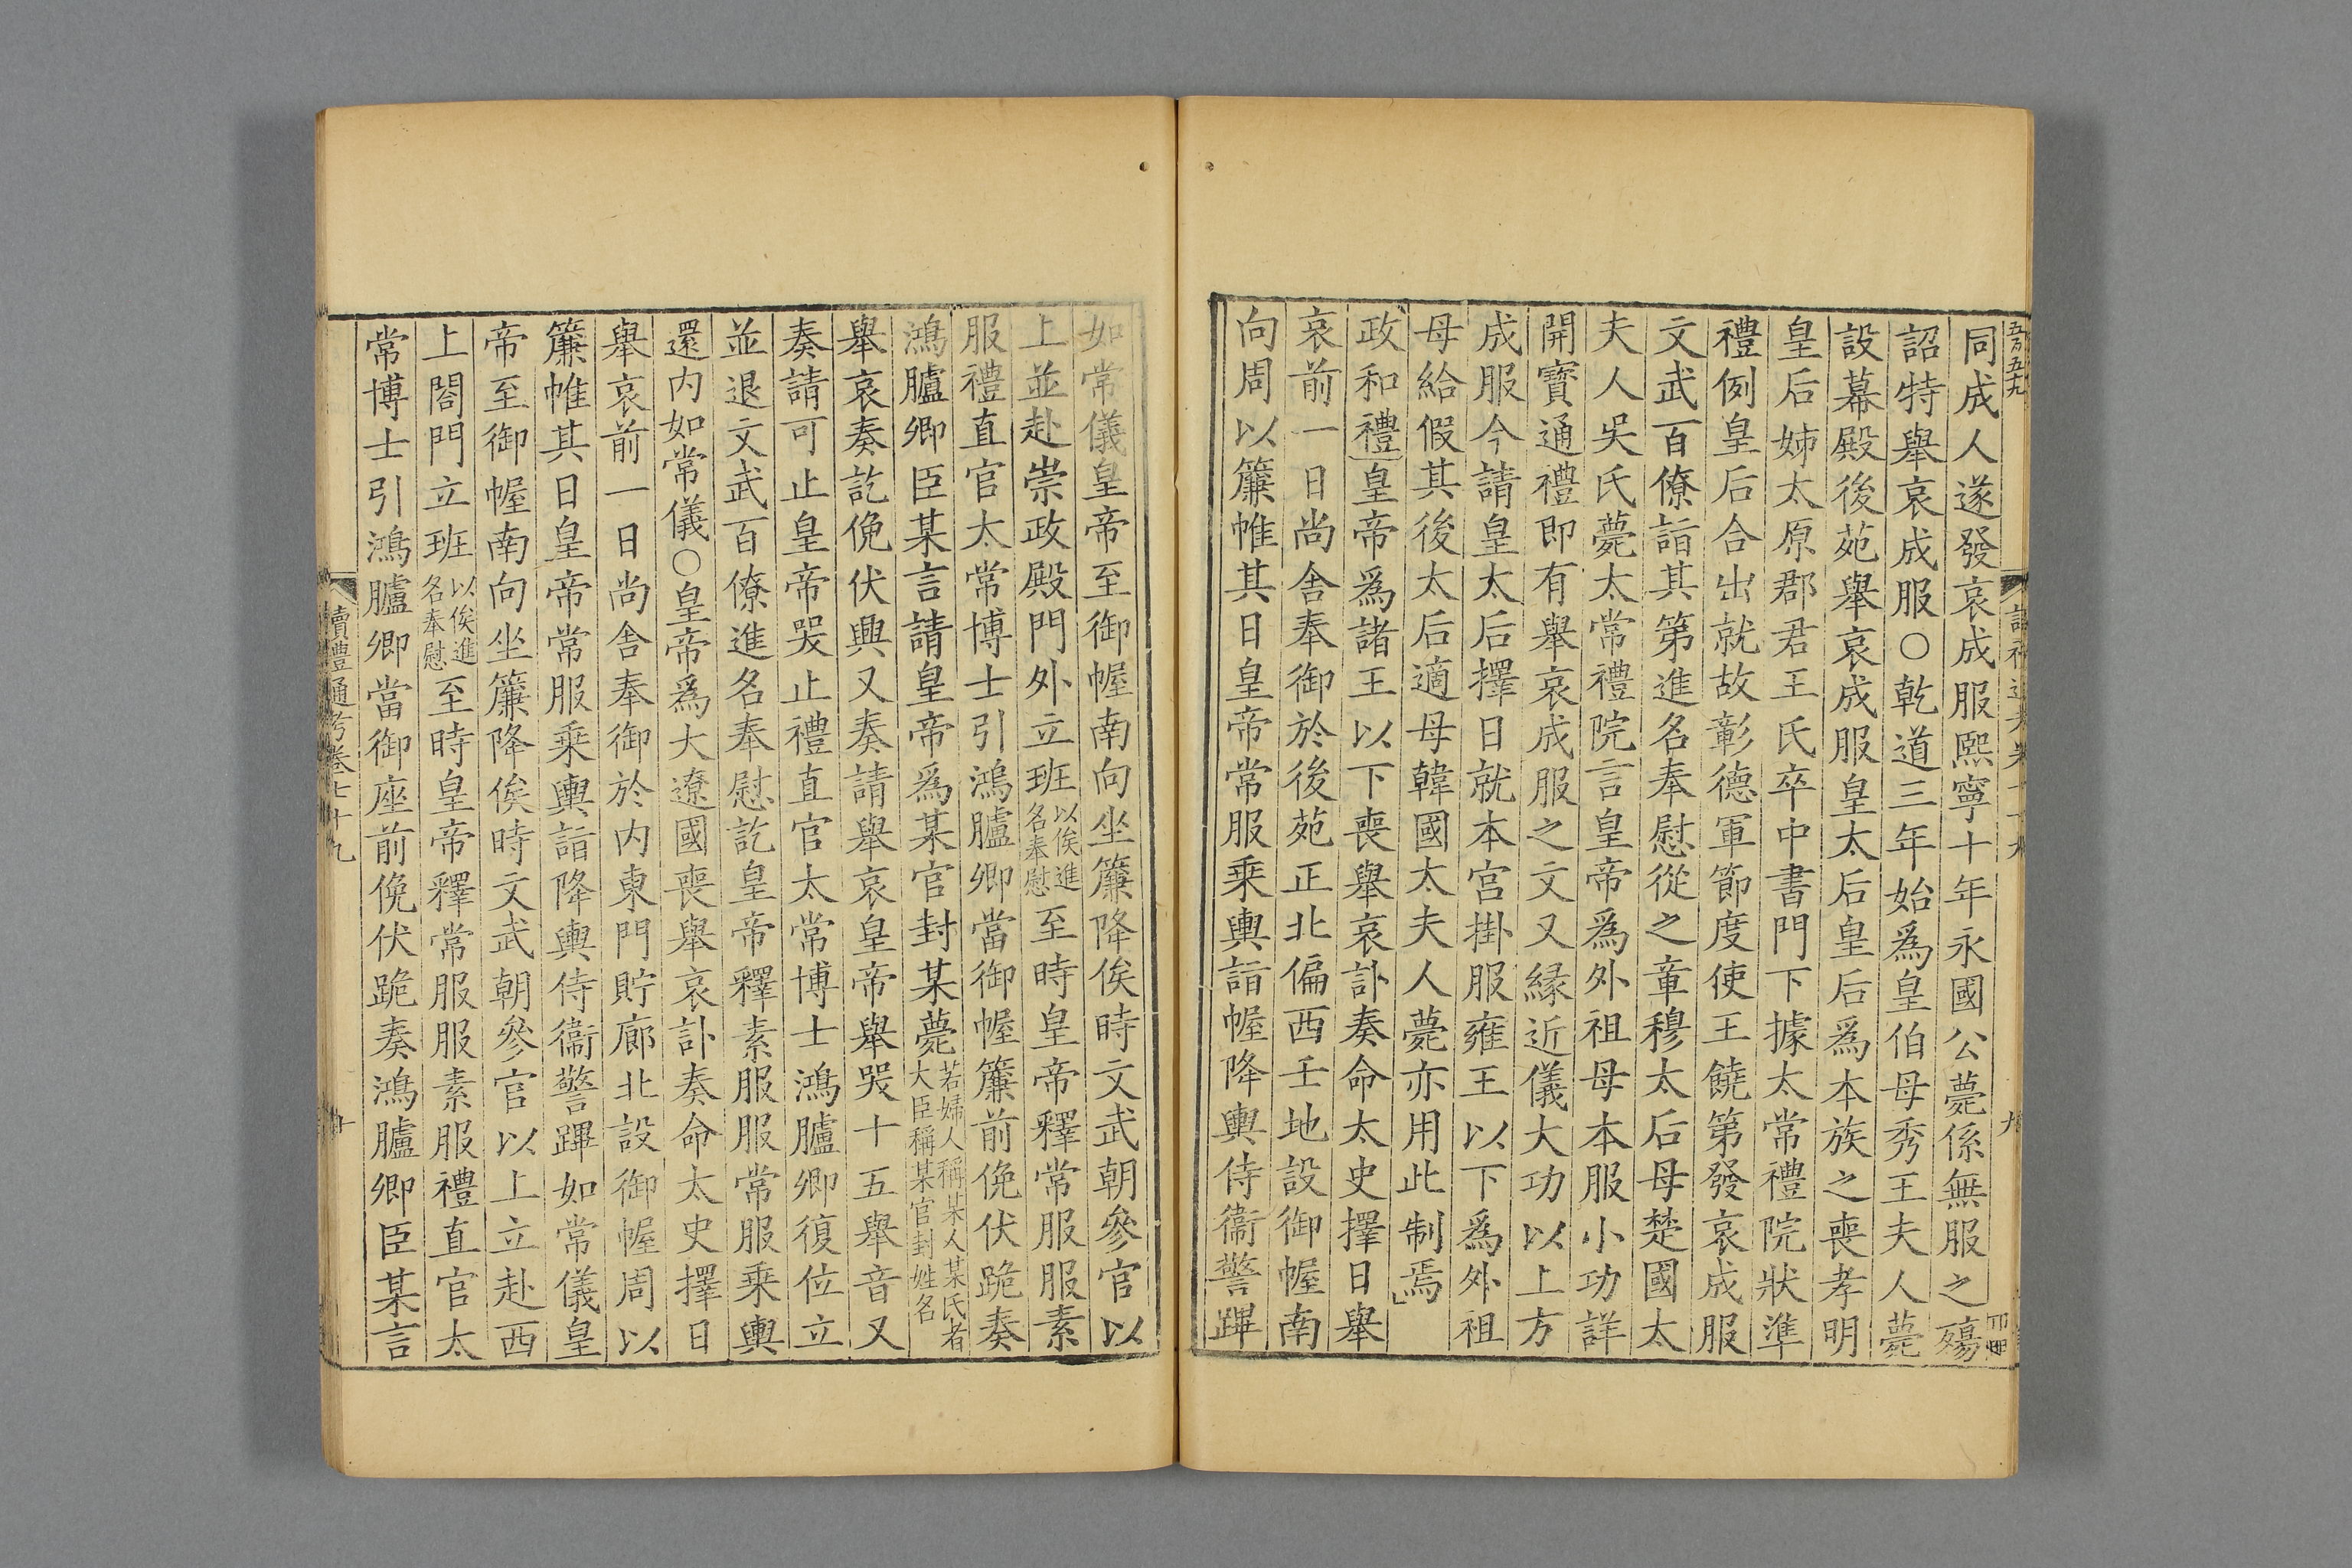 同成人遂發哀成服熙寧十年永國公薨係無服之殤
詔特舉哀成服○乾道三年始爲皇伯母秀王夫人薨
設幕殿後苑舉哀成服皇太后皇后爲本族之喪孝明
皇后姊太原郡君王氏卒中書門下據太常禮院狀準
禮例皇后合出就故彰德軍節度使王饒第發哀成服
文武百僚詣其第進名奉慰從之章穆太后母楚國太
夫人吳氏薨太常禮院言皇帝爲外祖母本服小功詳
開寶通禮即有舉哀成服之文又縁近儀大功以上方
成服今請皇太后擇日就本宮掛服雍王以下爲外祖
母給假其後太后適母韓國太夫人薨亦用此制焉
政和禮皇帝爲諸王以下喪舉哀訃奏命太史擇日舉
哀前一日尚舍奉御於後苑正北偏西壬地設御幄南
向周以簾帷其日皇帝常服乘輿詣幄降輿侍衞警蹕
如常儀皇帝至御幄南向坐簾降俟時文武朝參官以
上並赴崇政殿門外立班以俟進名奉慰至時皇帝釋常服服素
服禮直官太常博士引鴻臚卿當御幄簾前俛伏跪奏
鴻臚卿臣某言請皇帝爲某官封某薨若婦人稱某人某氏者大臣稱某官封姓名
舉哀奏訖俛伏興又奏請舉哀皇帝舉哭十五舉音又
奏請可止皇帝哭止禮直官太常博士鴻臚卿復位立
並退文武百僚進名奉慰訖皇帝釋素服服常服乘輿
還内如常儀○皇帝爲大遼國喪舉哀訃奏命太史擇日
舉哀前一日尚舍奉御於内東門貯廊北設御幄周以
簾帷其日皇帝常服乘輿詣降輿侍衞警蹕如常儀皇
帝至御幄南向坐簾降俟時文武朝參官以上立赴西
上閤門立班以俟進名奉慰至時皇帝釋常服服素服禮直官太
常博士引鴻臚卿當御座前俛伏跪奏鴻臚卿臣某言
讀禮通考卷七十九
十